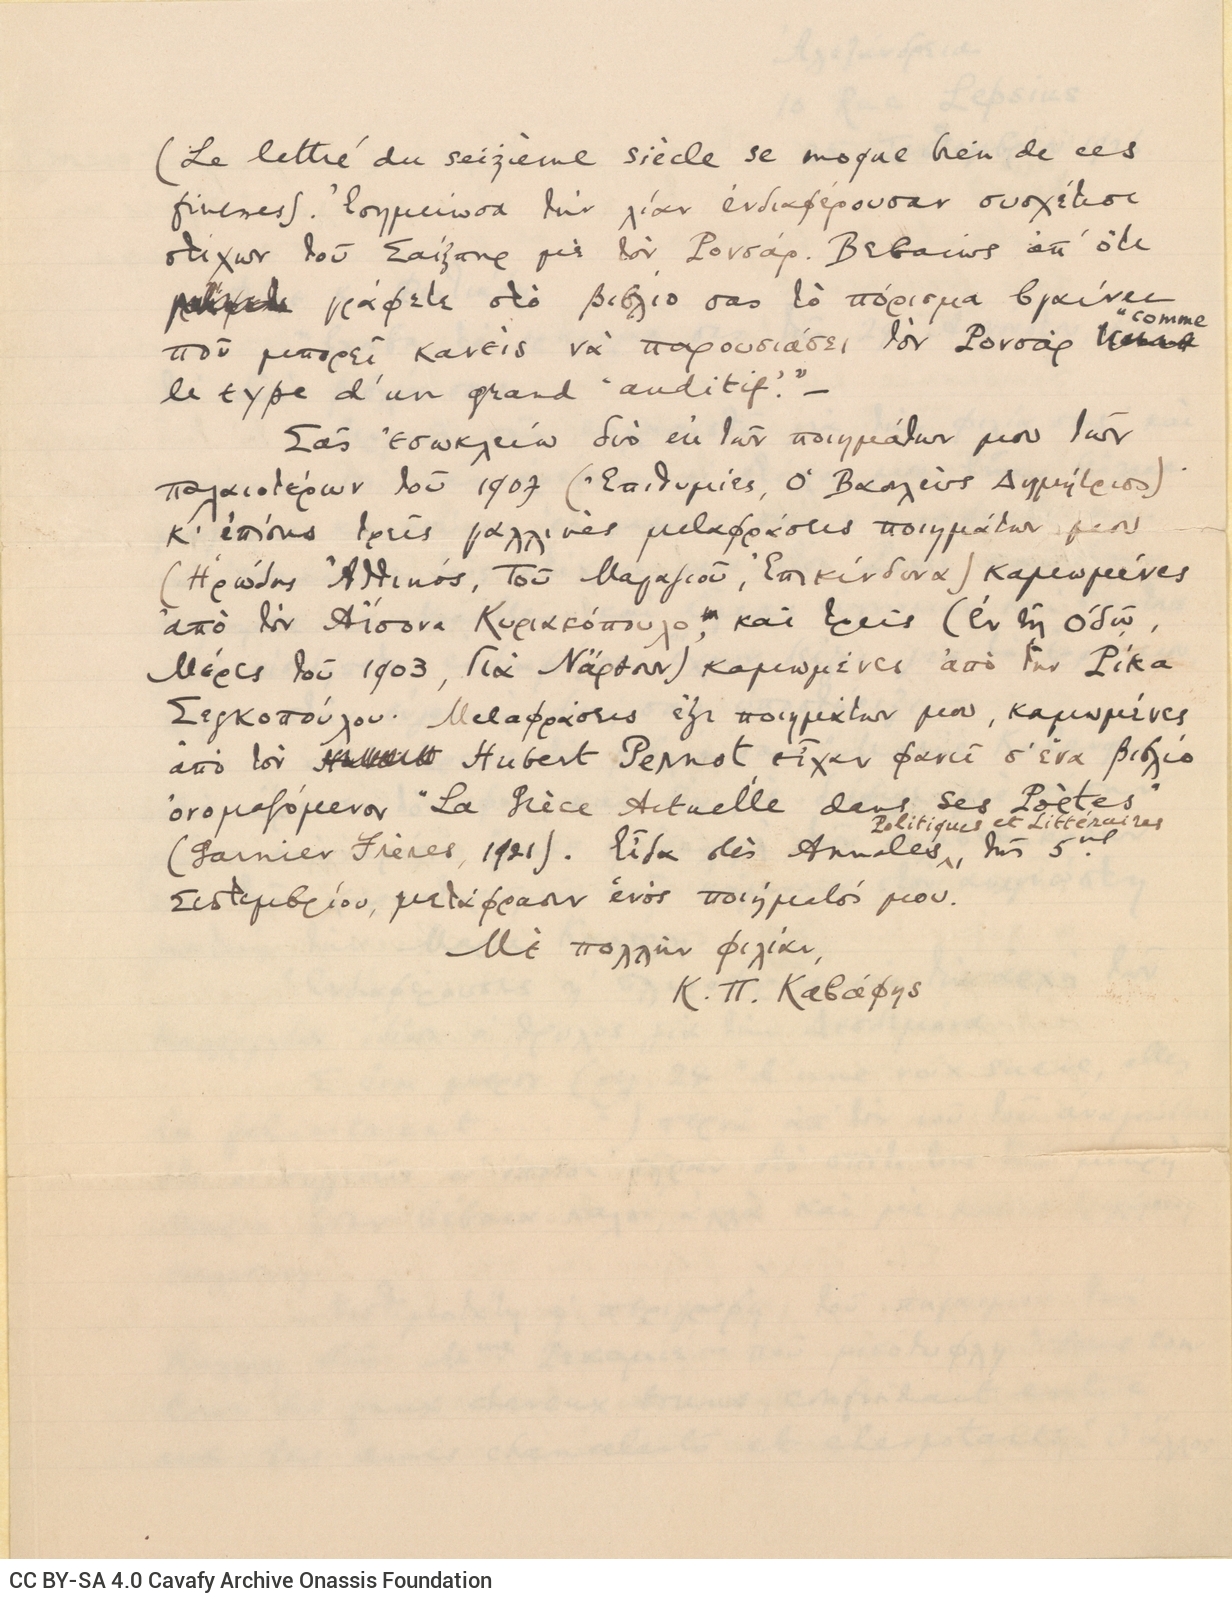 (Le lettré du seizième siècle se moque bien de ces
finesses). Ἐσημείωσα τὴν λίαν ἐνδιαφέρουσαν συσχέτισι
στίχων τοῦ Σαίξπηρ μὲ τὸν Ρονσάρ. Βεβαίως ἀπ' ὅτι
γράφετε στὸ βιβλίο σας τὸ πόρισμα βγαίνει
ποῦ μπορεῖ κανεὶς νὰ παρουσιάσει τὸν Ρονσὰρ "comme
le type d'un grand 'auditif'." —
Σᾶς ἐσωκλείω δυὸ ἐκ τῶν ποιημάτων μου τῶν
παλαιοτέρων τοῦ 1907 (Ἐπιθυμίες, Ὁ Βασιλεὺς Δημήτριος)
κ' ἐπίσης τρεῖς γαλλικὲς μεταφράσεις ποιημάτων μου
(Ἡρώδης Ἀττικός, Τοῦ Μαγαζιοῦ, Ἐπικίνδυνα) καμωμένες
ἀπὸ τὸν Αἴσονα Κυριακόπουλο, καὶ τρεῖς (Ἐν τῇ Ὁδῷ,
Μέρες τοῦ 1903, Γιὰ Νἄρθουν) καμωμένες ἀπὸ τὴν Ρίκα
Σεγκοπούλου. Μεταφράσεις ἕξι ποιημάτων μου, καμωμένες
ἀπὸ τὸν Hubert Pernot εἶχαν φανεῖ σ' ἕνα βιβλίο
ὀνομαζόμενον "La Grèce Actuelle dans ses Poètes"
(Garnier Frères, 1921). Εἶδα στὲς Annales Politiques et Littéraires, τῆς 5ης
Σεπτεμβρίου, μετάφρασιν ἑνὸς ποιήματός μου.
Μὲ πολλὴν φιλίαν,
Κ. Π. Καβάφης
CC BY-SA 4.0 Cavafy Archive Onassis Foundation